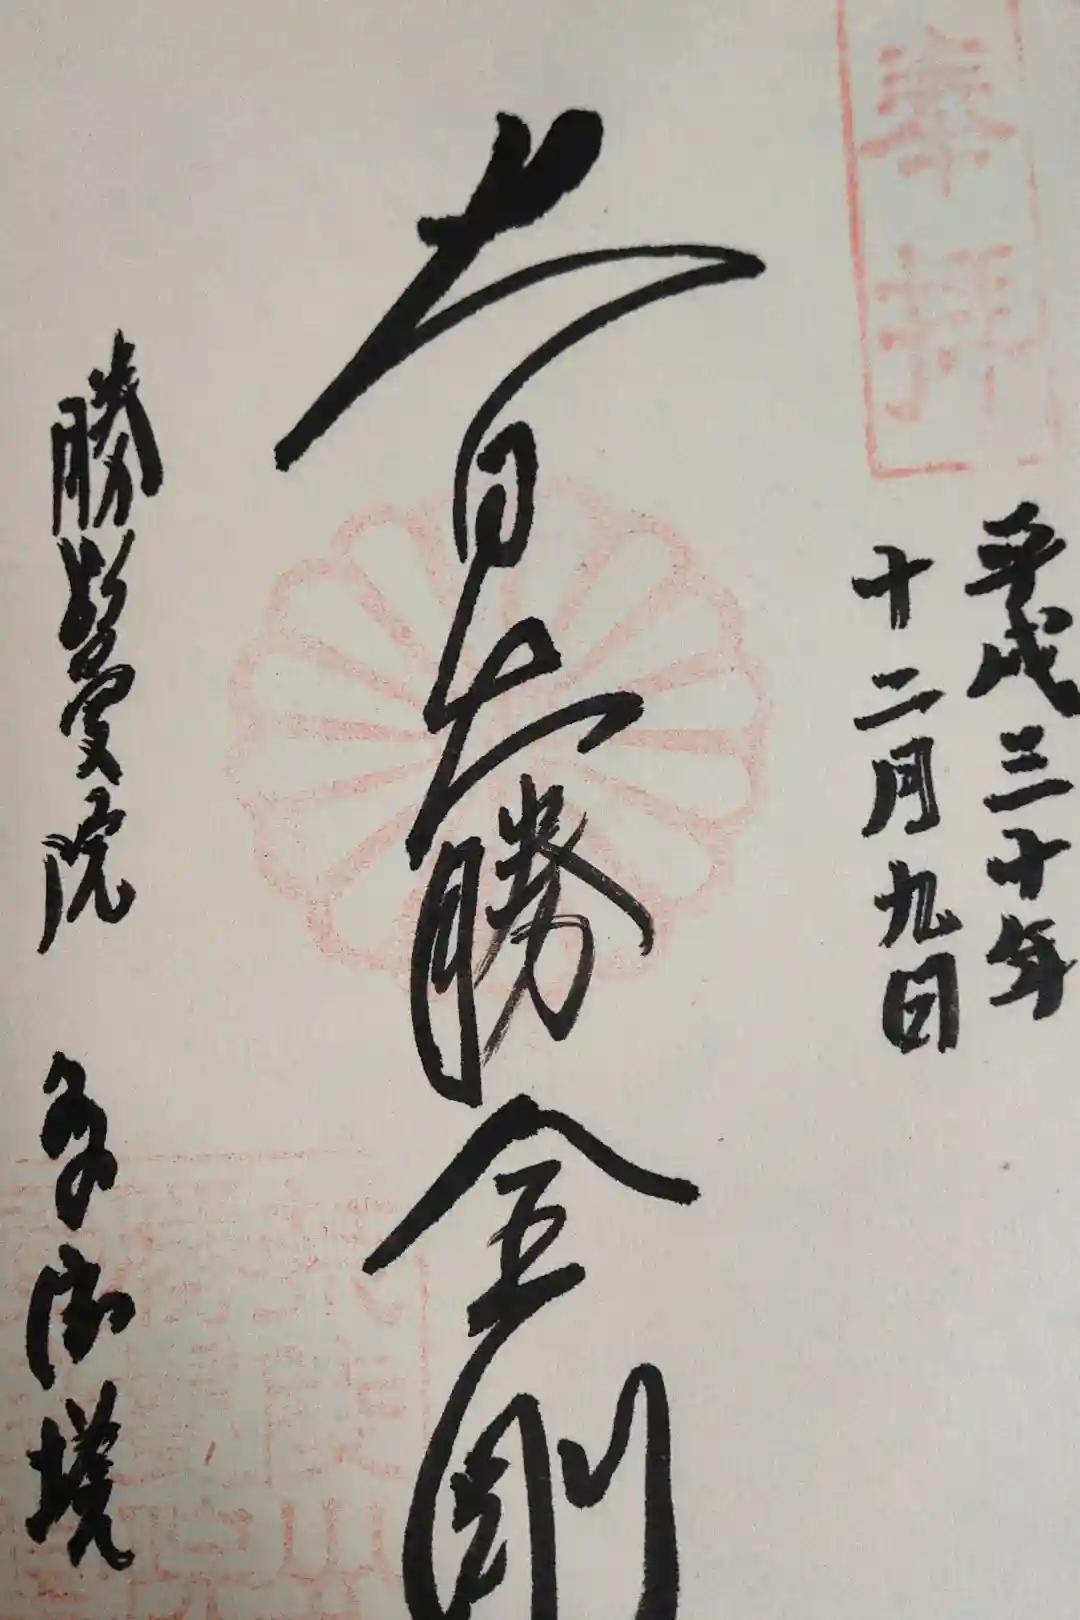 奉拝
平成三十年
十二月九日
大日大勝金剛
勝鬘愛院 多宝塔